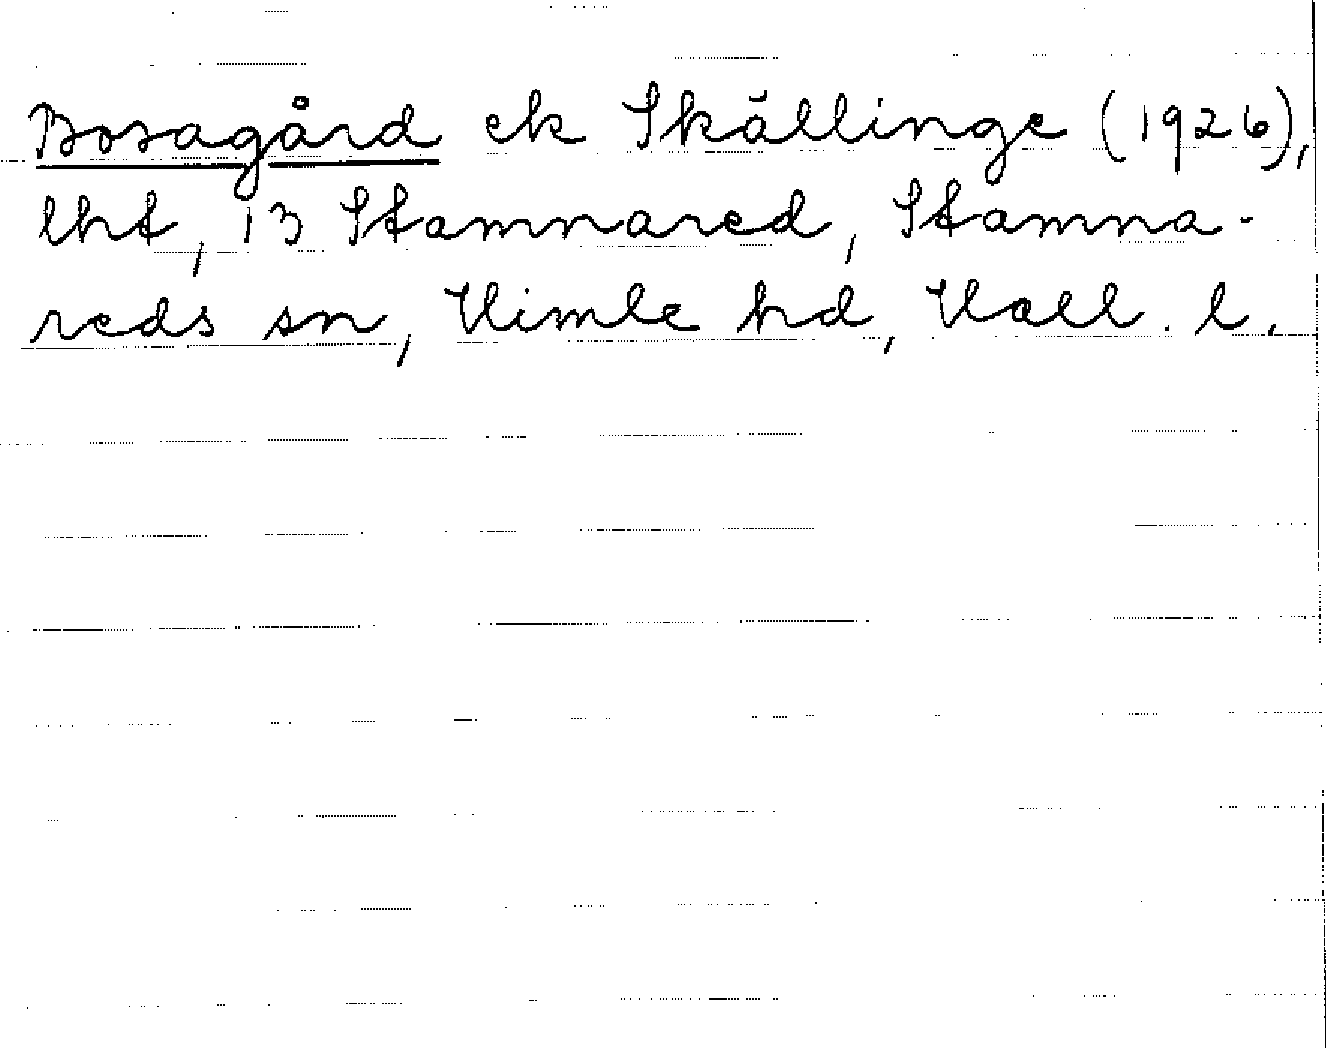 Bosagård ek Skällinge (1926),
lht, 13 Stamnared, Stamna-
reds sn, Himle hd, Hall. l.